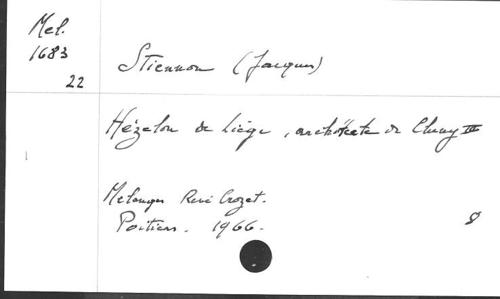 Mel.
1683
22
Stiennon (Jacques)
Hézelon de Liège, architecte de Cluny III
Mélanges René Crozet.
Poitiers. 1966.